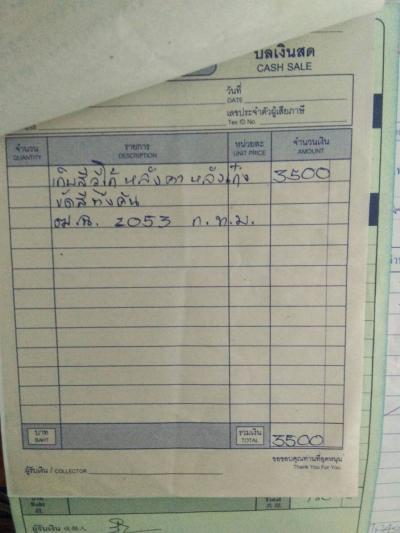 บิลเงินสด
CASH SALE
วันที่
DATE
เลขประจำตัวผู้เสียภาษี
Tax ID No.
จำนวน รายการ หน่วยละ จำนวนเงิน
QUANTITY DESCRIPTION UNIT PRICE AMOUNT
เก็บสีวีโก้ หลังคา หลังเก๋ง 3500
ขัดสีทั้งคัน
ฒ.ฉ. 2053 ก.ท.ม.
บาท รวมเงิน
BAHT TOTAL 3500
ขอขอบคุณท่านที่อุดหนุน
Thank You For You
ผู้รับเงิน / COLLECTOR
Total
ผู้รับเงิน